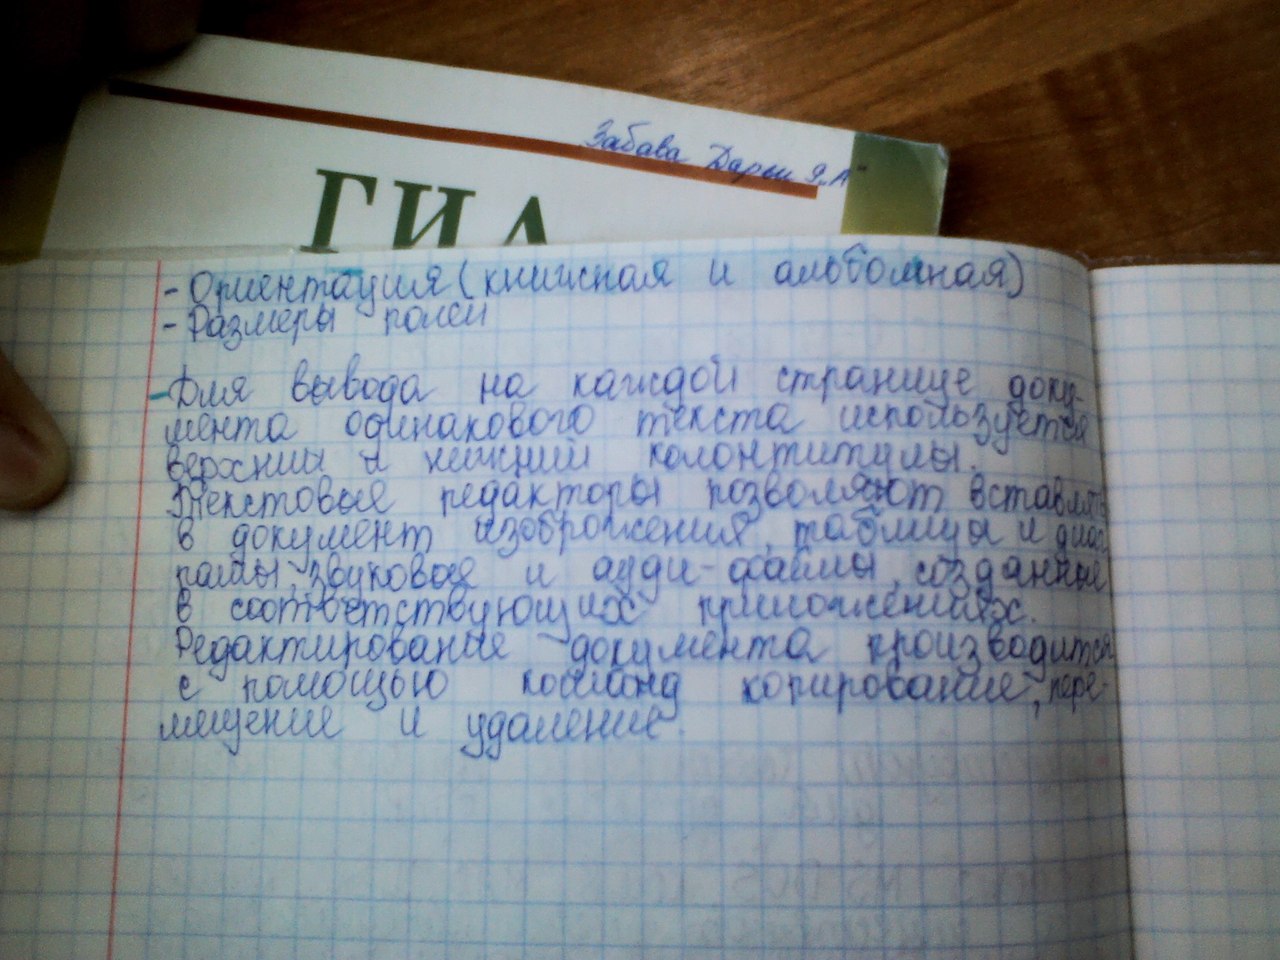 Забава Дарьи 9„А"
ГИА
- Ориентация (книжная и альбомная)
- Размеры полей
- Для вывода на каждой странице доку-
мента одинакового текста используется
верхний и нижний колонтитулы.
Текстовые редакторы позволяют вставлять
в документ изоброжения, таблицы и диаг
рамы, звуковые и ауди-файлы, созданные
в соответствующих приложениях.
Редактирование документа производится
с помощью команд копирование, пере-
мещение и удаление.